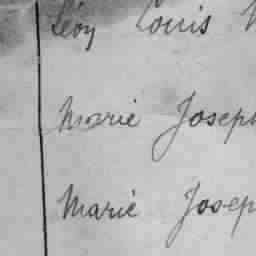 Léon Louis
Marie Joseph
Marie Josep